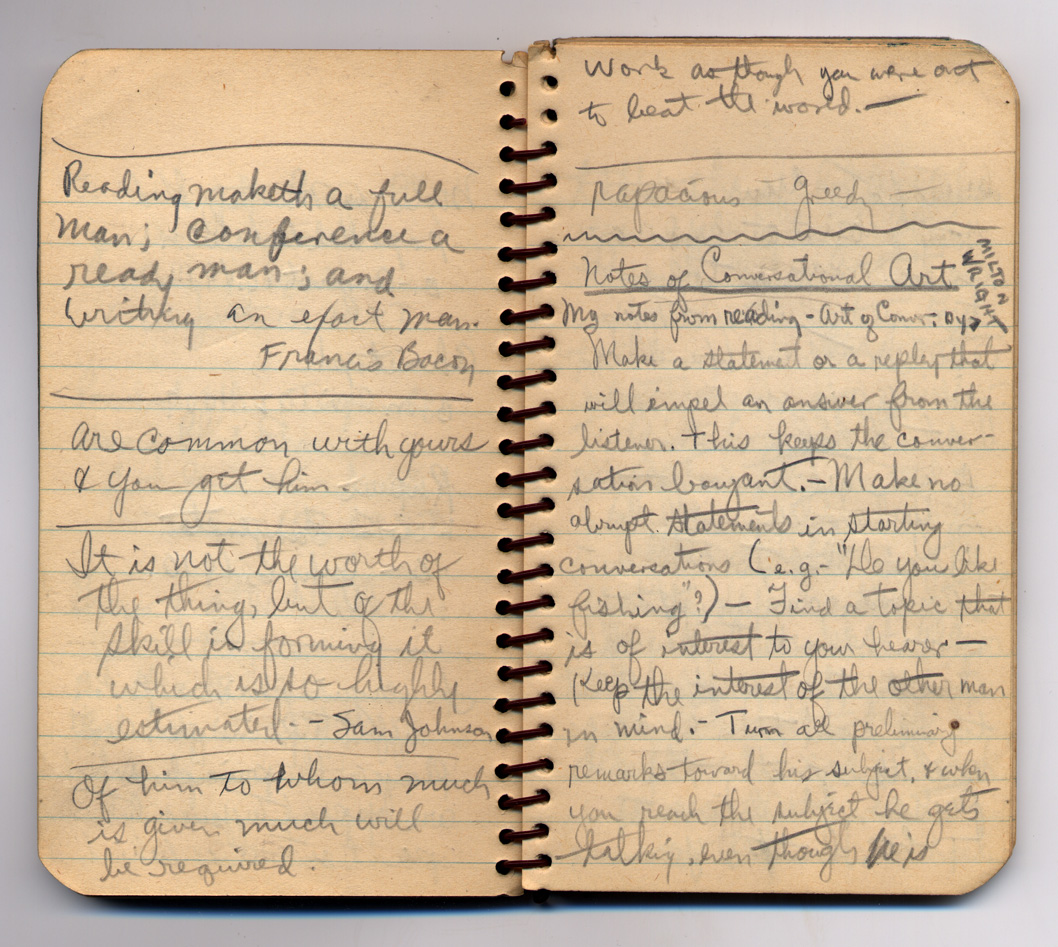 Reading maketh a full
man; conference a
ready man; and
writing an exact man.
Francis Bacon
are common with yours
& you get him.
It is not the worth of
the thing, but of the
skill in forming it
which is so highly
estimated. - Sam Johnson
Of him to whom much
is given much will
be required.
Work as though you were out
to beat the world. —
rapacious - greedy —
Notes of Conversational Art
My notes from reading - Art of Conv. by >
MILTON WRIGHT
Make a statement or a reply that
will impel an answer from the
listener. This keeps the conver-
sation bouyant. - Make no
abrupt statements in starting
conversations (e.g. - "Do you like
fishing"?) — Find a topic that
is of interest to your hearer —
Keep the interest of the other man
in mind. - Turn all preliminary
remarks toward his subject, & when
you reach the subject he gets
talking, even though he is